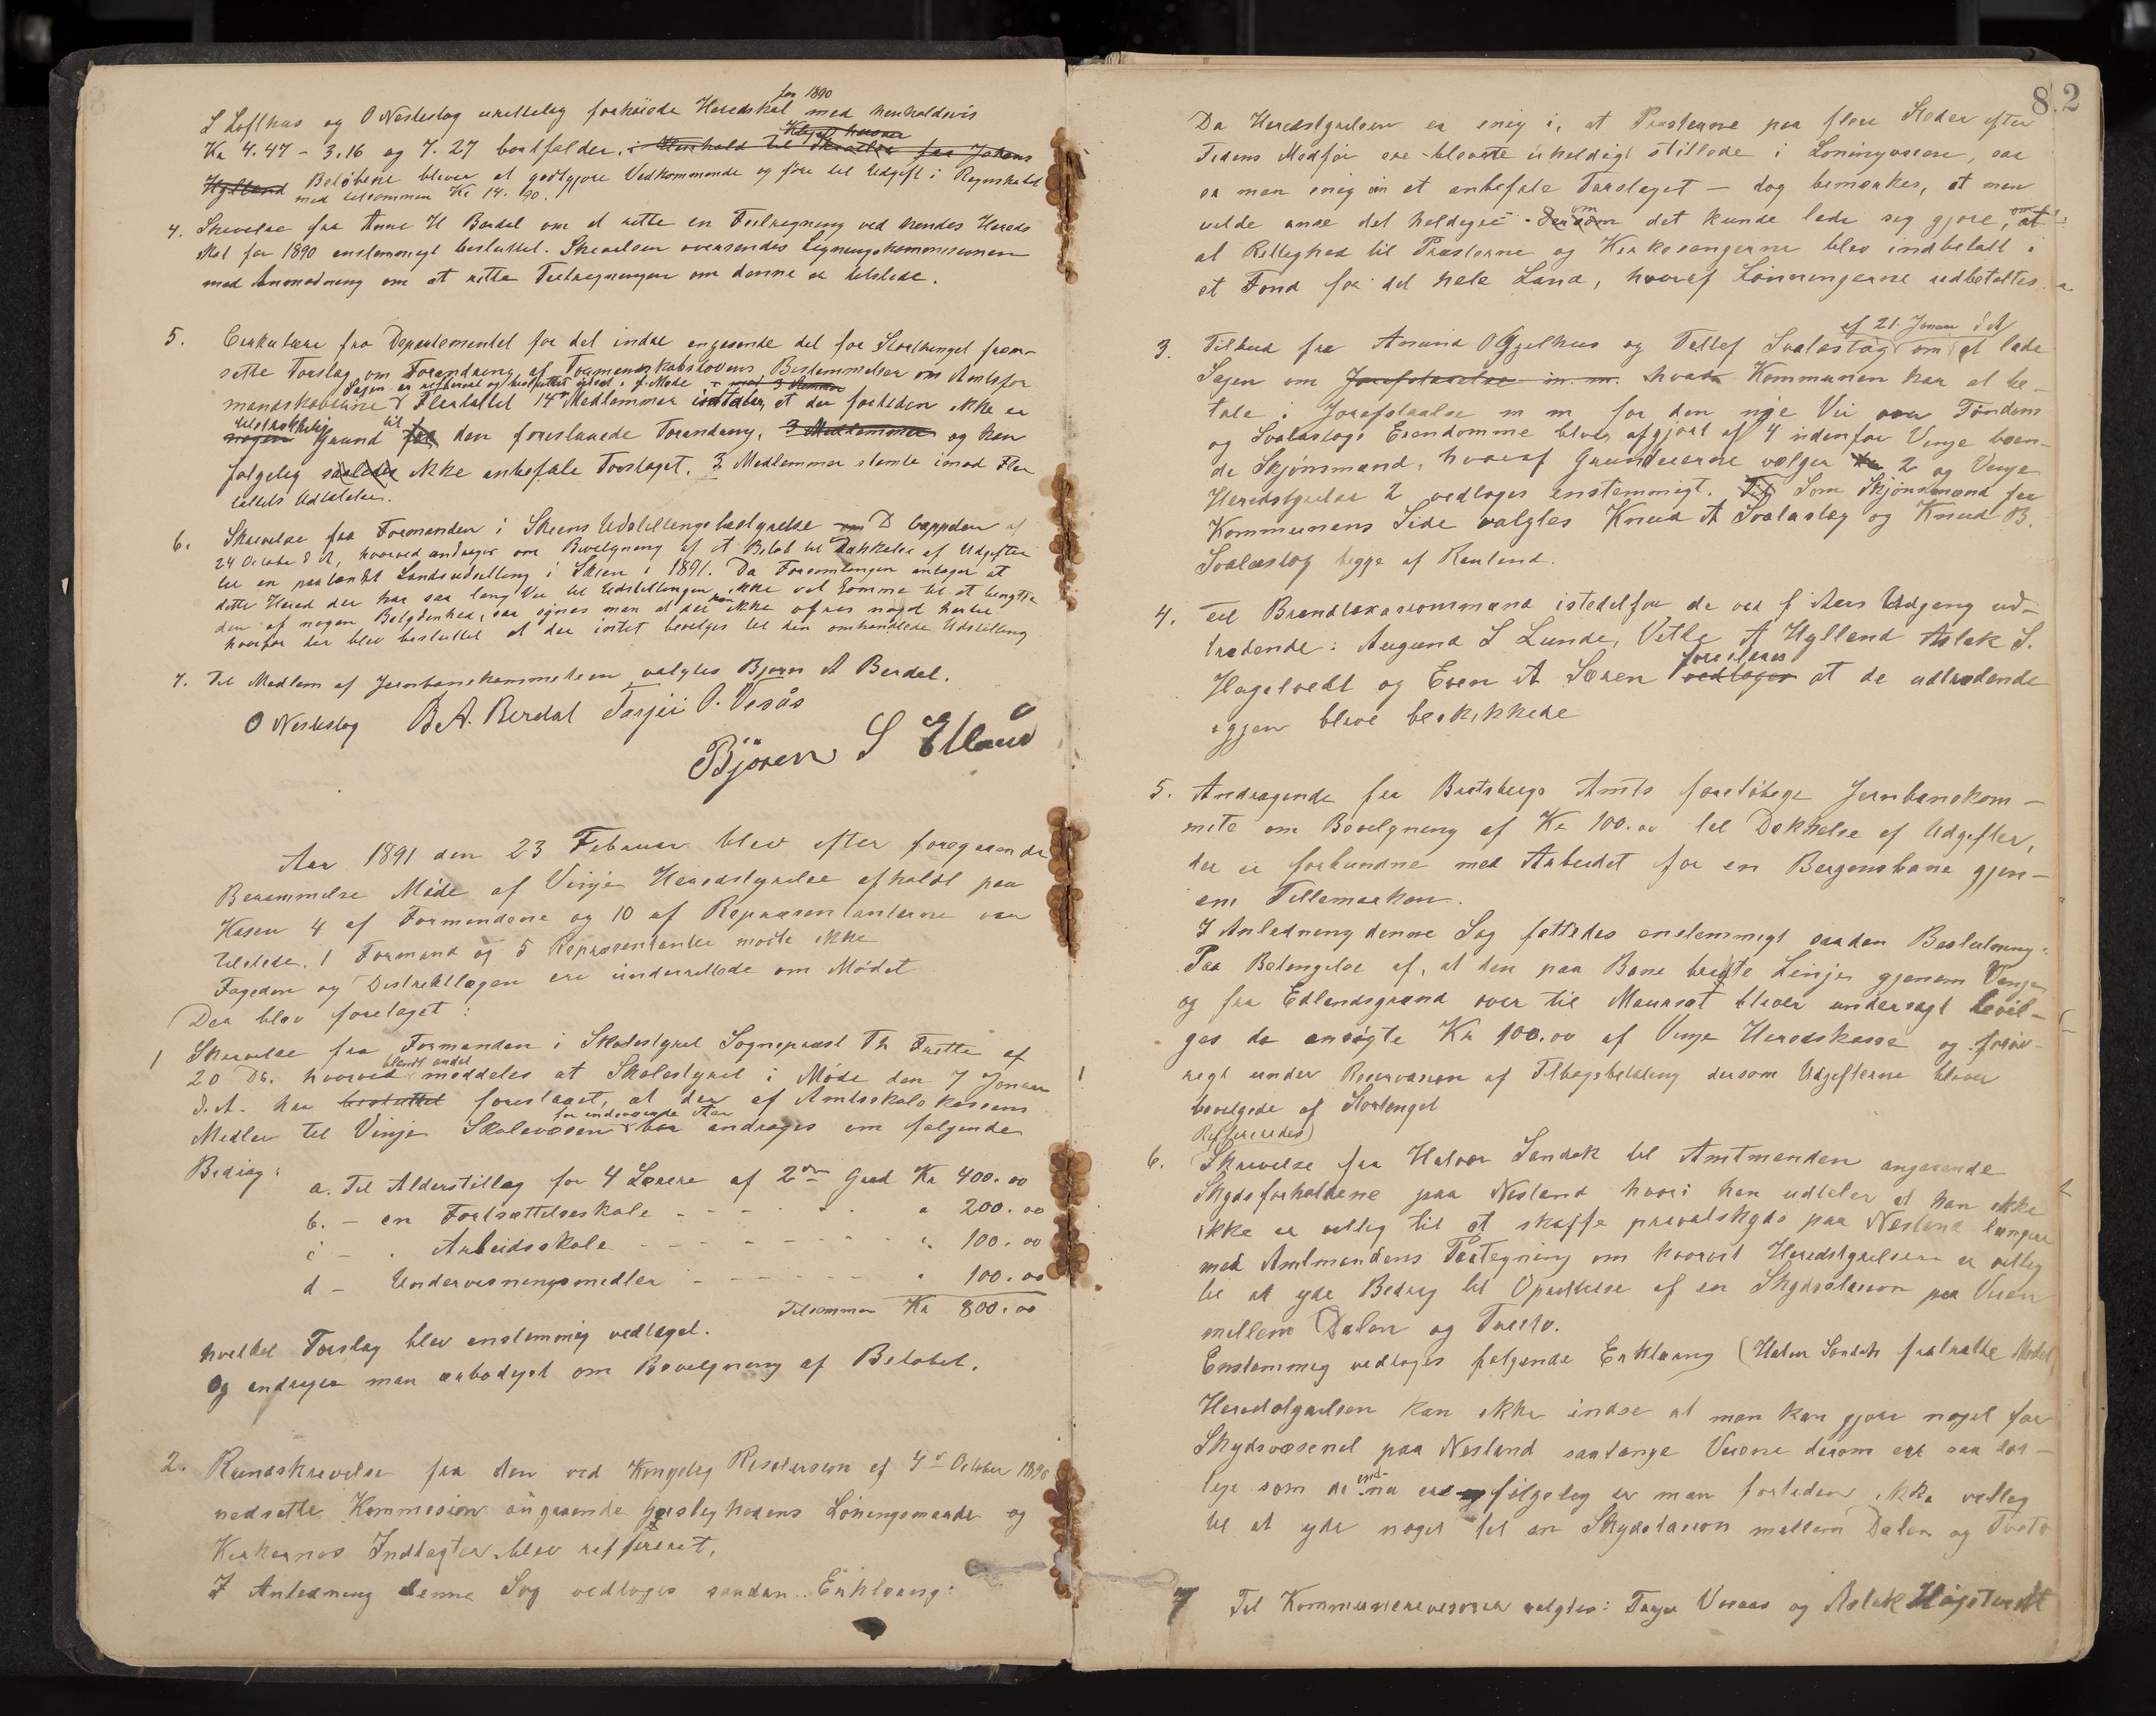 for 1890
L Lofthus og O Nesteslog urettelig forhøiede Heredskat med henholdsvis
Kr 4.47 - 3.16 og 7.27 bortfalder. i Henhold til Skrivelse fra Johans
Klage herover
Hylland Beløbene bliver at godtgjøre Vedkommende og føre til Udgift i Regnskabet
med tilsammen Kr 14.90.
4. Skrivelse fra Anne H Berdal om at rette en Feilregning ved hendes Hereds
skat for 1890 enstemmigt besluttet. Skrivelsen oversendes Ligningskommissionen
med Anmodning om at rette Feilregningen om denne er tilstede.
5. Cirkulære fra Departementet for det indre angaaende det for Storthinget frem-
satte Forslag om Forandring af Formandskabslovens Bestemmelser om Amtsfor
Sagen er refereret og besluttet udsat i f. Møde - med 3 Stemmer
mandskaberne Flertallet 14 Medlemmer udtaler, at der forleden ikke er
tilstrækkelig til
nogen Grund for den foreslaaede Forandring. 3 Medlemmer og kan
følgelig saaledes ikke anbefale Forslaget. 3 Medlemmer stemte imod Fler
tallets Udtalelse.
6. Skrivelse fra Formanden i Skiens Udstillingsbestyrelse om D Cappelen af
24 October d A, hvorved andrages om Bevilgning af et Beløb til Dækkelse af Udgifter
til en paatænkt Landsudstilling i Skien i 1891. Da Forsamlingen antager at
dette Hered der har saa lang Vei til Udstillingen, ikke vil komme til at benytte
den af nogen Betydenhed, saa synes man at der kan ikke ofres noget hertil
hvorfor der blev besluttet at der intet bevilges til den omhandlede Udstilling
7. Til Medlem af Jernbanekommiteen valgtes Bjørn A Berdal.
O Nesteslog B.A. Berdal Tarjei O. Vesås
Björen S Edland
Aar 1891 den 23 Februar blev efter foregaaende
Berammelse Møde af Vinje Heredstyrelse afholdt paa
Kasen 4 af Formændene og 10 af Repræsentanterne var
tilstede. 1 Formand og 5 Repræsentanter mødte ikke
Fogeden og Distriktlægen ere underrettede om Mødet
Der blev foretaget:
1 Skrivelse fra Formanden i Skolestyret Sogneprest Th Frette af
blandt andet
20 Ds. hvorved meddeles at Skolestyret i Møde den 7 Januar
d.A. har besluttet foreslaaet, at der af Amtsskolekassens
for indeværende Aar
Midler til Vinje Skolevæsen bør andrages om følgende
Bidrag:
a. Til Alderstillæg for 4 Lærere af 2den Grad Kr 400.00
b. - en Fortsættelseskole - - - - - " 200.00
c - . Arbeidsskole - - - - - - - - - " 100.00
d - Undervisningsmidler - - - - - - " 100.00
Tilsammen Kr 800.00
hvilket Forslag blev enstemmig vedtaget.
Og andrager man ærbødigst om Bevilgning af Beløbet.
2. Rundskrivelse fra den ved Kongelig Resolution af 4de October 1890
nedsatte Kommission angaaende Geistlighedens Lønningsmaade og
Kirkernes Indtægter blev refereret.
I Anledning denne Sag vedtoges saadan Erklæring:
82
Da Heredstyrelsen er enig i, at Presterne paa flere Steder efter
Tidens Medfør ere blevne uheldigt stillede i Lønningsveien, saa
er man enig i at anbefale Forslaget - dog bemærkes, at man
vilde anse det heldigst - dersom om det kunde lade sig gjøre, at
al Rettighed til Presterne og Kirkesangerne blev indbetalt i
et Fond for det hele Land, hvoraf Lønningerne udbetaltes
af 21. Januar d A
3. Tilbud fra Amund O Gjelhus og Tellef Svalastog om at lade
Sagen om Jordafstaaelse m. m. hvad Kommunen har at be-
tale i Jordafstaalse m m for den nye Vei over Tøndens
og Svalastogs Eiendomme blive afgjort af 4 udenfor Vinje boen-
de Skjønsmænd, hvoraf Grundeierne vælger 2 og Vinje
Heredstyrelse 2 vedtoges enstemmigt. Til Som Skjønsmænd fra
Kommunens Side valgtes Knud A Svalastog og Knud B.
Svalastog begge af Rauland.
4. Til Brandtaxasionsmænd istedetfor de ved f Aars Udgang ud-
trædende: Augund S Lunde, Vetle A Hylland Aslak S.
foreslaaes
Hagetvedt og Even A Særen vedtoges at de udtrædende
igjen blive beskikkede
5. Andragende fra Bratsbergs Amts foreløbige Jernbanekom-
mite om Bevilgning af Kr 100.00 til Dækkelse af Udgifter,
der er forbundne med Arbeidet for en Bergensbane gjen-
em Tellemarken.
I Anledning denne Sag fattedes enstemmigt saadan Beslutning:
Paa Betingelse af, at den paa Bane bragte Linje gjenem Vinje
og fra Edlandsgrænd over til Maursæt bliver undersøgt bevil-
ges de ansøgte Kr 100.00 af Vinje Heredskasse og forøv-
rigt under Reservasion af Tilbagebetaling dersom Udgifterne bliver
bevilgede af Stortinget
Refereredes)
6. Skrivelse fra Halvor Sandok til Amtmanden angaaende
Skydsforholdene paa Nesland hvori han udtaler at han ikke
ikke er villig til at skaffe privatskyds paa Nesland længere
med Amtmandens Paategning om hvorvidt Heredstyrelsen er villig
til at yde Bidrag til Oprettelse af en Skydsstasion paa Veien
mellem Dalen og Tveito.
Enstemmig vedtoges følgende Erklæring (Halvor Sandok fratraadte Mødet)
Heredstyrelsen kan ikke indse at man kan gjøre noget for
Skydsvæsenet paa Nesland saalænge Veiene derom er saa dar-
lige som de end nu ere og følgelig er man forleden ikke villig
til at yde noget til en Skydsstasion mellem Dalen og Tveito
7 Til Kommunerevisorer valgtes: Tarjei Vesaas og Aslak Högetvedt